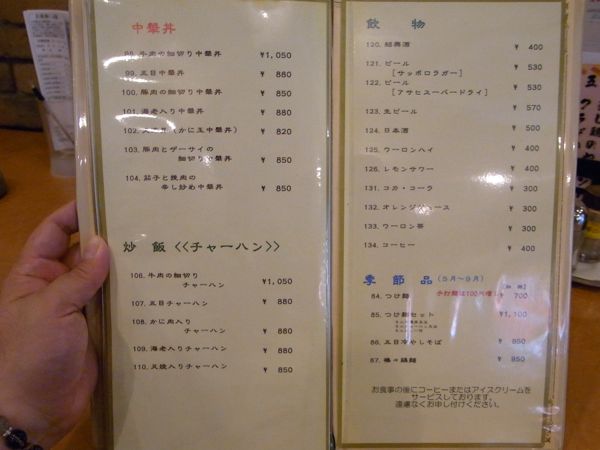 中華丼
98. 牛肉の細切り中華丼 ¥1,050
99. 五目中華丼 ¥ 880
100. 豚肉の細切り中華丼 ¥ 850
101. 海老入り中華丼 ¥ 880
102. (かに玉中華丼) ¥ 820
103. 豚肉とザーサイの
細切り中華丼 ¥ 850
104. 茄子と挽肉の
辛し炒め中華丼 ¥ 850
炒飯<<チャーハン>>
106. 牛肉の細切り
チャーハン ¥1,050
107. 五目チャーハン ¥ 880
108. かに肉入り
チャーハン ¥ 880
109. 海老入りチャーハン ¥ 880
110. 叉焼入りチャーハン ¥ 850
飲物
120. 紹興酒 ¥ 400
121. ビール
[サッポロラガー] ¥ 530
122. ビール
[アサヒスーパードライ] ¥ 530
123. 生ビール ¥ 570
124. 日本酒 ¥ 500
125. ウーロンハイ ¥ 400
126. レモンサワー ¥ 400
131. コカ・コーラ ¥ 300
132. オレンジジュース ¥ 300
133. ウーロン茶 ¥ 300
134. コーヒー ¥ 400
季節品 (5月~9月)
84. つけ麺 ¥ 700
85. つけ麺セット ¥1,100
86. 五目冷やしそば ¥ 850
87. ¥ 850
お食事の後にコーヒーまたはアイスクリームを
サービスしております。
遠慮なくお申し付けください。